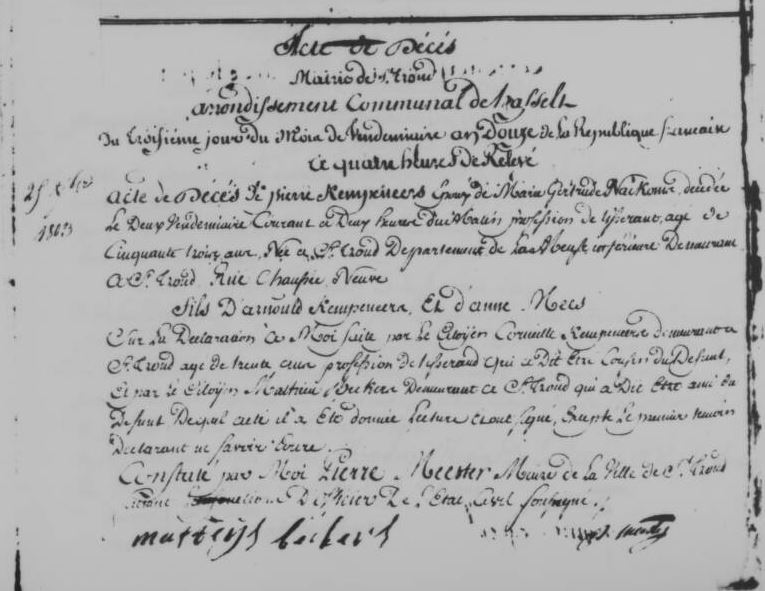 Acte de Décés
Mairie de St Trond
arrondissement Communal de hasselt
du troisiéme jour du Mois de Vendemiaire an Douze de la Republique francaise
a quatre heures de Relevé
25 7bre
1803
acte de Décés de pierre Kempeneers Epoux de Marie Gertrude decedée
le Deux Vendemiaire Courant a Deux heures du Matin profession de tisserant, age de
Cinquante trois ans, Née a St Trond Departement de la Meuse inférieure Demeurant
a St Trond Rue Chaussée Neuve
fils D'arnould Kempeneers, Et d'anne Mees
Sur la Declaration a Moi faite par le Citoyen Corneille Kempeneers demeurant a
St Trond age de trente ans profession de tisserand qui a Dit Etre Cousin du Defunt,
Et par le Citoyen Mathieu Beckers Demeurant a St Trond qui a Dit Etre ami du
Defunt Dequel acte il a Eté donnée Lecture et ont signé, Excepté le premier temoin
Declarant ne savoir Ecrire.
Constaté par Moi Pierre Meester Maire de la Ville de St Trond
faisant fonctions D'officier De l'Etat Civil soussigné.
mattijs beckers